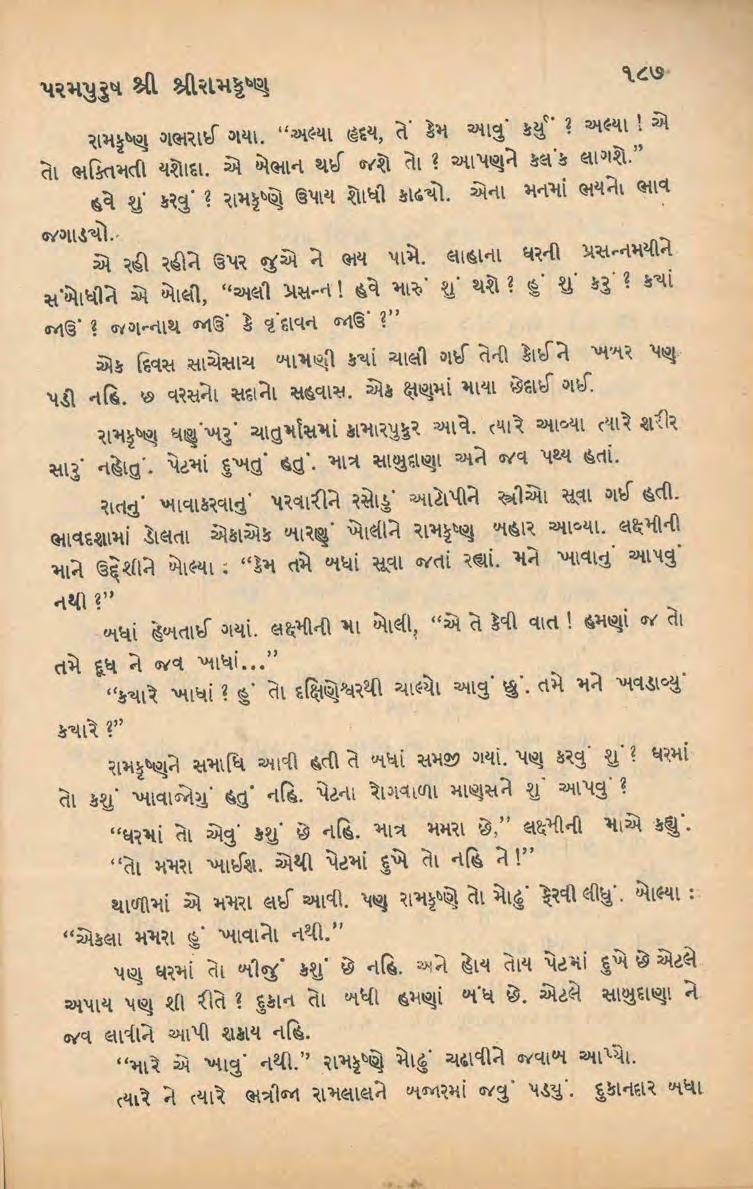 પરમપુરુષ શ્રી શ્રીરામકૃષ્ણ
૧૮૭
રામકૃષ્ણ ગભરાઈ ગયા. “અલ્યા હૃદય, તેં કેમ આવું કર્યું ? અલ્યા ! એ
તો ભક્તિમતી યશોદા. એ બેભાન થઈ જશે તો ? આપણને કલંક લાગશે.”
હવે શું કરવું ? રામકૃષ્ણે ઉપાય શોધી કાઢયો. એના મનમાં ભયનો ભાવ
જગાડયો.
એ રહી રહીને ઉપર જુએ ને ભય પામે. લાહાના ઘરની પ્રસન્નમયીને
સંબોધીને એ બોલી, “અલી પ્રસન્ન ! હવે મારું શું થશે ? હું શું કરું ? કયાં
જાઉં ? જગન્નાથ જાઉં કે વૃંદાવન જાઉં ?”
એક દિવસ સાચેસાચ બામણી કયાં ચાલી ગઈ તેની કોઈને ખબર પણ
પડી નહિ. છ વરસનો સદાનો સહવાસ. એક ક્ષણમાં માયા છેદાઈ ગઈ.
રામકૃષ્ણ ઘણુંખરું ચાતુર્માસમાં કામારપુકુર આવે. ત્યારે આવ્યા ત્યારે શરીર
સારું નહોતું. પેટમાં દુખતું હતું. માત્ર સાબુદાણા અને જવ પથ્ય હતાં.
રાતનું ખાવાકરવાનું પરવારીને રસોડું આટોપીને સ્ત્રીઓ સૂવા ગઈ હતી.
ભાવદશામાં ડોલતા એકાએક બારણું ખોલીને રામકૃષ્ણ બહાર આવ્યા. લક્ષ્મીની
માને ઉદ્દેશીને બોલ્યા : “કેમ તમે બધાં સૂવા જતાં રહ્યાં. મને ખાવાનું આપવું
નથી ?”
બધાં હેબતાઈ ગયાં. લક્ષ્મીની મા બોલી, “એ તે કેવી વાત ! હમણાં જ તો
તમે દૂધ ને જવ ખાધાં...”
“કયારે ખાધાં ? હું તો દક્ષિણેશ્વરથી ચાલ્યો આવું છું. તમે મને ખવડાવ્યું
કયારે ?”
રામકૃષ્ણને સમાધિ આવી હતી તે બધાં સમજી ગયાં. પણ કરવું શું ? ઘરમાં
તો કશું ખાવાજોગું હતું નહિ. પેટના રોગવાળા માણસને શું આપવું ?
“ઘરમાં તો એવું કશું છે નહિ. માત્ર મમરા છે,” લક્ષ્મીની માએ કહ્યું.
“તો મમરા ખાઈશ. એથી પેટમાં દુખે તો નહિ ને !”
થાળીમાં એ મમરા લઈ આવી. પણ રામકૃષ્ણે તો મોઢું ફેરવી લીધું. બોલ્યા :
“એકલા મમરા હું ખાવાનો નથી.”
પણ ઘરમાં તો બીજું કશું છે નહિ. અને હોય તોય પેટમાં દુખે છે એટલે
અપાય પણ શી રીતે ? દુકાન તો બધી હમણાં બંધ છે. એટલે સાબુદાણા ને
જવ લાવીને આપી શકાય નહિ.
“મારે એ ખાવું નથી.” રામકૃષ્ણે મોઢું ચઢાવીને જવાબ આપ્યો.
ત્યારે ને ત્યારે ભત્રીજા રામલાલને બજારમાં જવું પડયું. દુકાનદાર બધા